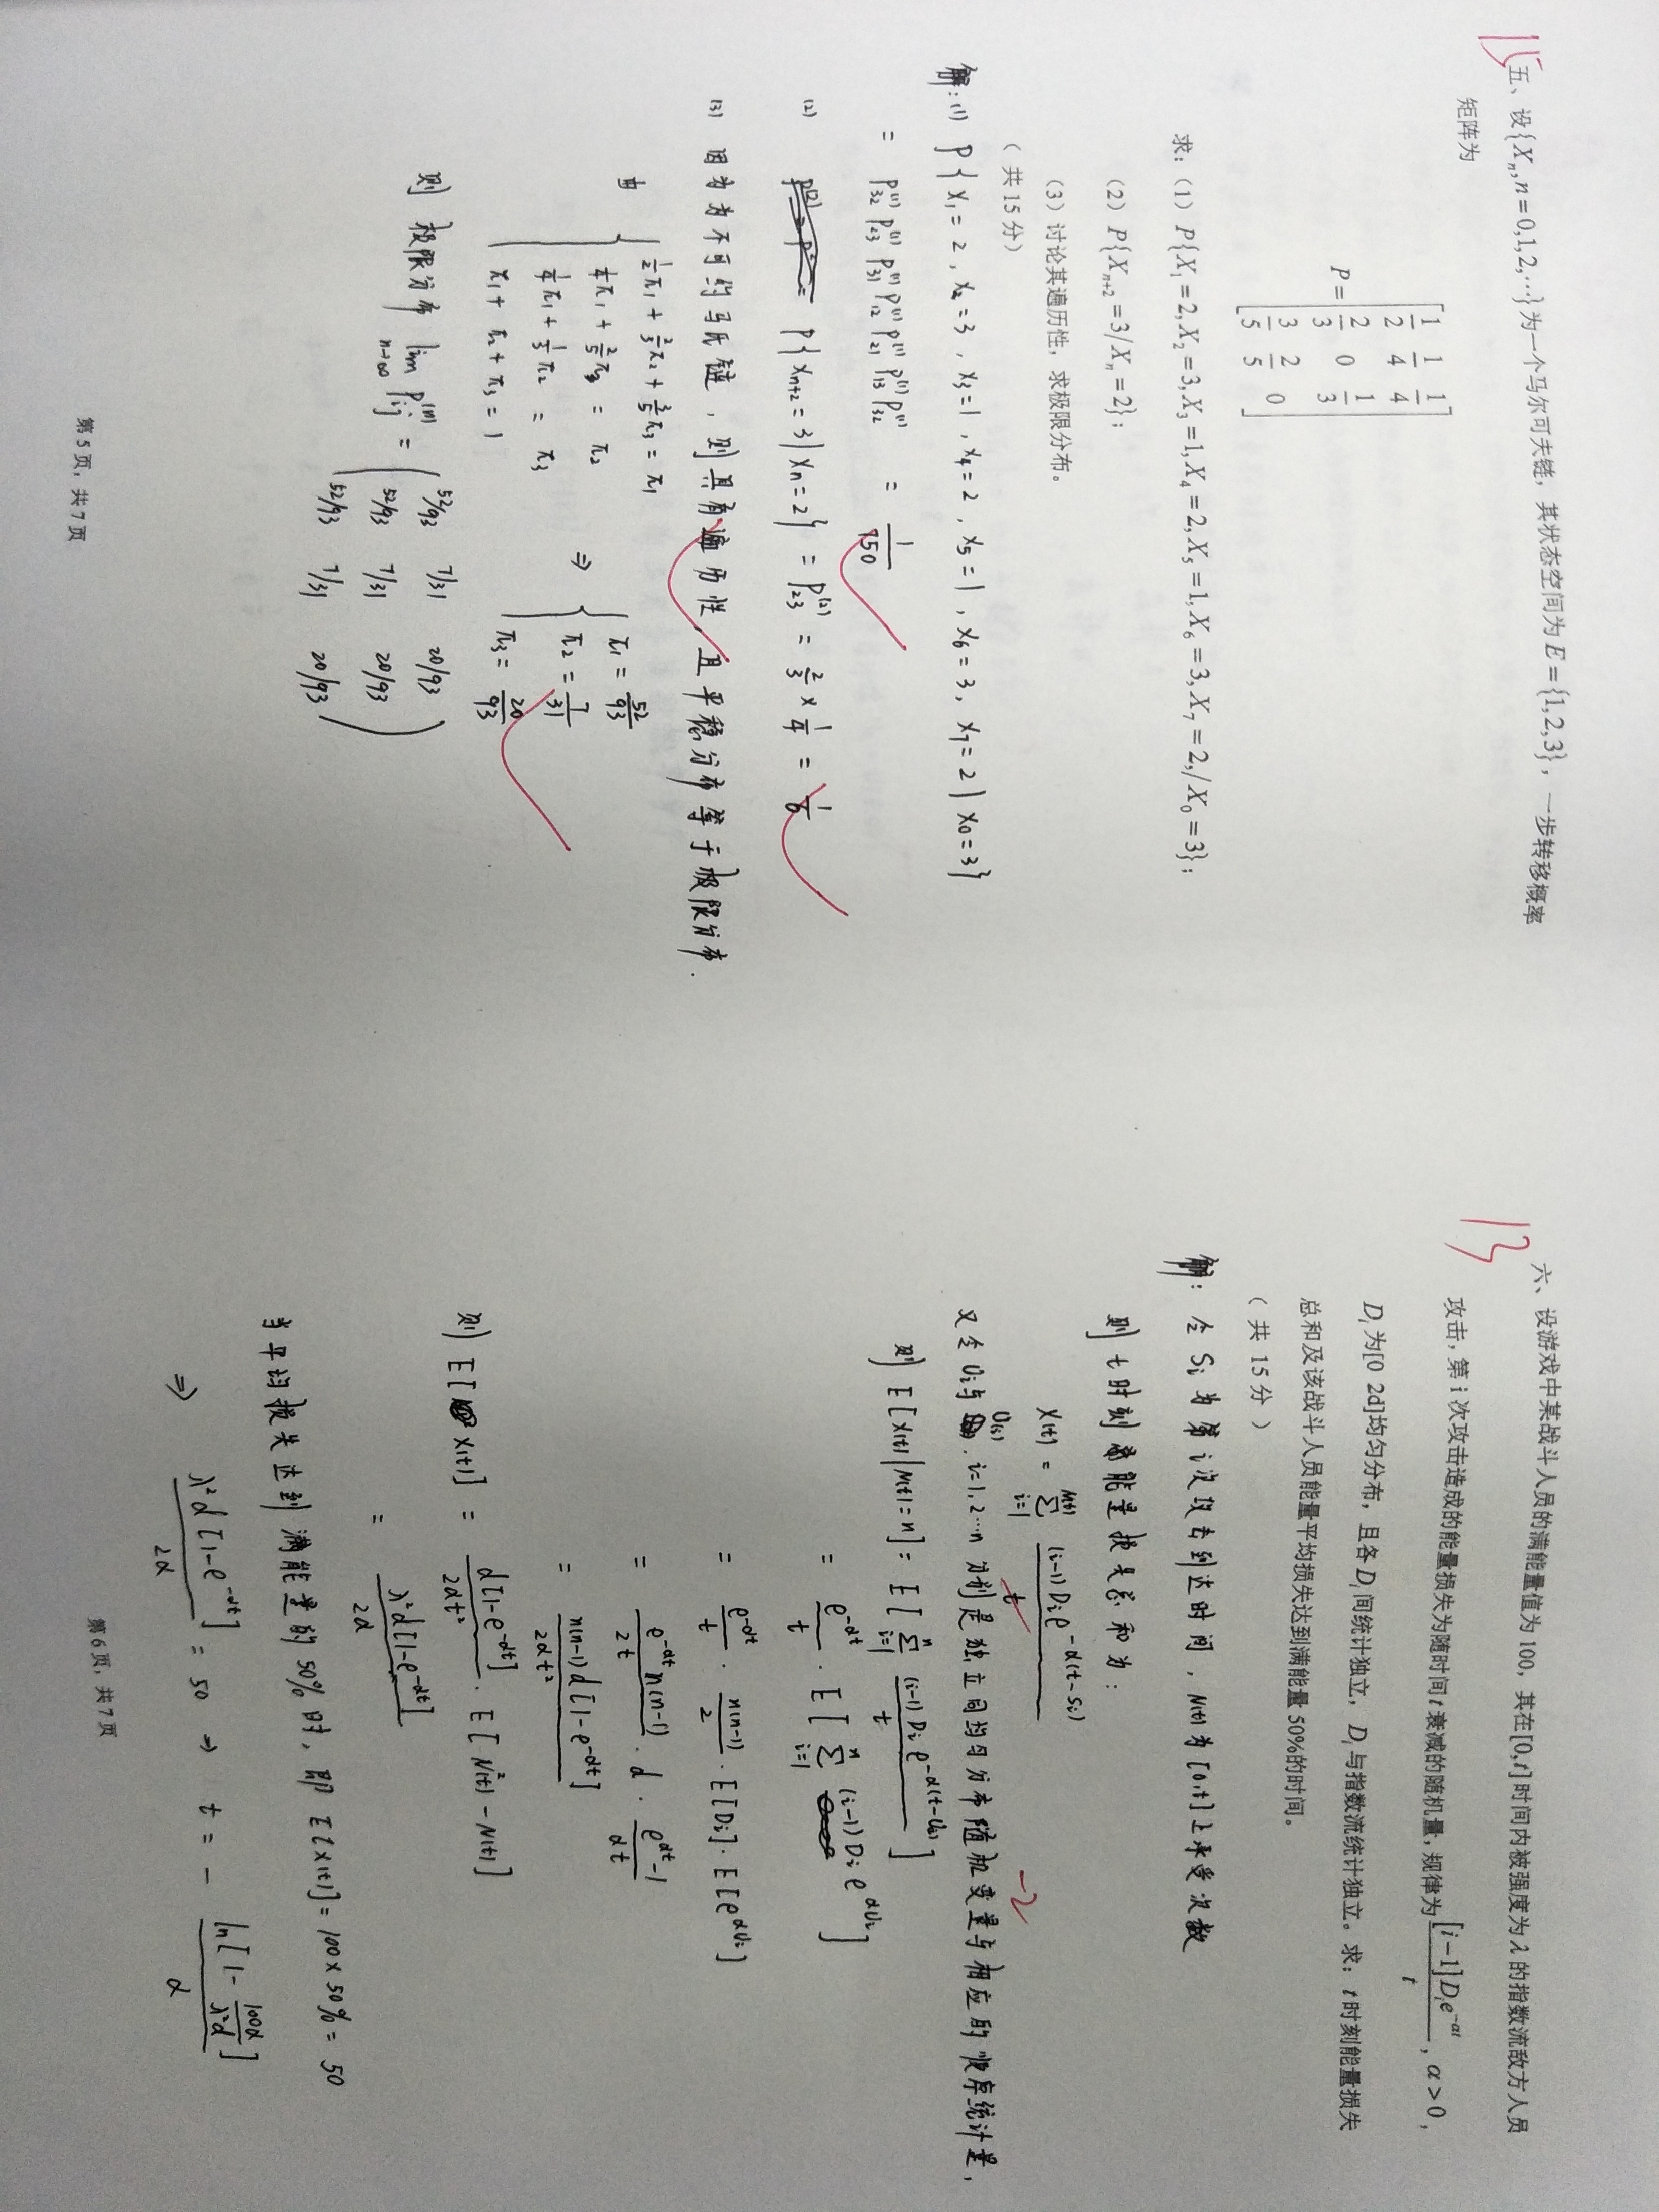 15
五、设{Xₙ,n=0,1,2,⋯}为一个马尔可夫链，其状态空间为E={1,2,3}，一步转移概率
矩阵为
P=[1/2 1/4 1/4
2/3 0 1/3
3/5 2/5 0]
求：（1）P{X₁=2,X₂=3,X₃=1,X₄=2,X₅=1,X₆=3,X₇=2,/X₀=3}；
（2）P{Xₙ₊₂=3/Xₙ=2}；
（3）讨论其遍历性，求极限分布。
（ 共15分）
解:(1) P{X₁=2, X₂=3, X₃=1, X₄=2, X₅=1, X₆=3, X₇=2 | X₀=3}
= P₃₂⁽¹⁾ P₂₃⁽¹⁾ P₃₁⁽¹⁾ P₁₂⁽¹⁾ P₂₁⁽¹⁾ P₁₃⁽¹⁾ P₃₂⁽¹⁾ = 1/750
(2) P{Xₙ₊₂=3|Xₙ=2} = P₂₃⁽²⁾ = 2/3 × 1/4 = 1/6
(3) 因为为不可约马氏链，则具有遍历性，且平稳分布等于极限分布.
由 { 1/2π₁ + 2/3π₂ + 3/5π₃ = π₁
1/4π₁ + 2/5π₃ = π₂
1/4π₁ + 1/3π₂ = π₃
π₁ + π₂ + π₃ = 1
⇒ { π₁ = 52/93
π₂ = 7/31
π₃ = 20/93
则 极限分布 lim n→∞ Pᵢⱼ⁽ⁿ⁾ = ( 52/93 7/31 20/93
52/93 7/31 20/93
52/93 7/31 20/93 )
第5页，共7页
13
六、设游戏中某战斗人员的满能量值为100，其在[0,t]时间内被强度为λ的指数流敌方人员
攻击，第i次攻击造成的能量损失为随时间t衰减的随机量，规律为[i−1]Dᵢe^(−αt)/t，α>0，
Dᵢ为[0 2d]均匀分布，且各Dᵢ间统计独立，Dᵢ与指数流统计独立。求：t时刻能量损失
总和及该战斗人员能量平均损失达到满能量50%的时间。
（ 共 15分 ）
解: 令 Sᵢ 为第i次攻击到达时间，N(t)为[0,t]上承受次数
则 t时刻 能量损失总和为:
X(t) = Σ(i=1→N(t)) (i-1)Dᵢe^(-α(t-Sᵢ))/t
-2
又令 Uᵢ与 U₍ᵢ₎, i=1,2⋯n 分别是独立同均匀分布随机变量与相应的顺序统计量,
则 E[X(t)|N(t)=n] = E[Σ(i=1→n) (i-1)Dᵢe^(-α(t-U₍ᵢ₎))/t]
= e^(-αt)/t · E[Σ(i=1→n) (i-1)Dᵢ e^(αUᵢ)]
= e^(-αt)/t · n(n-1)/2 · E[Dᵢ]· E[e^(αUᵢ)]
= e^(-αt)n(n-1)/2t · d · (e^(αt)-1)/αt
= n(n-1)d[1-e^(-αt)]/2αt²
则 E[X(t)] = d[1-e^(-αt)]/2αt² · E[N²(t)-N(t)]
= λ²d[1-e^(-αt)]/2α
当平均损失达到满能量的50%时，即 E[X(t)]=100×50%=50
⇒ λ²d[1-e^(-αt)]/2α = 50 ⇒ t = - ln[1- 100α/λ²d]/α
第6页，共7页